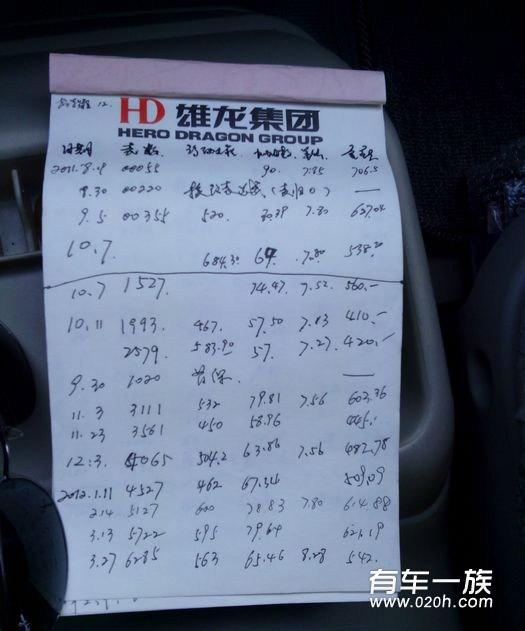 HD 雄龙集团
HERO DRAGON GROUP
日期 表数 单价 金额
2011.8.9 00055 90. 7.85 706.5
8.30 00220 —
9.5 00355 520. 7.80 627.04
10.7. 684.30 69. 7.80. 538.20
10.7 1527. 74.47 7.52. 560.—
10.11 1993. 467. 57.50 7.13 410.—
2579. 583.90 57. 7.27 420.—
9.30 1020 首保. —
11.3 3111 532 79.81 7.56 603.36
11.23 3561 450 58.86 445.—
12.3. 4065 504.2 63.86 7.56 482.78
2012.1.11 4527 462 67.34 509.09
2.14 5127 600 78.83 7.80 614.88
3.13 5722 595 79.64 621.19
3.27 6285 563 65.46 8.28 542.
有车一族
www.020h.com